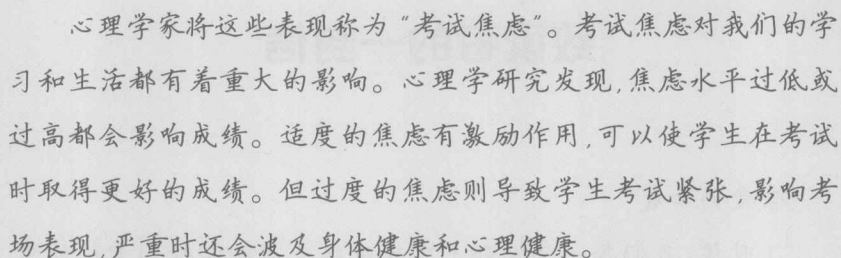 心理学家将这些表现称为“考试焦虑”。考试焦虑对我们的学
习和生活都有着重大的影响。心理学研究发现,焦虑水平过低或
过高都会影响成绩。适度的焦虑有激励作用,可以使学生在考试
时取得更好的成绩。但过度的焦虑则导致学生考试紧张,影响考
场表现,严重时还会波及身体健康和心理健康。